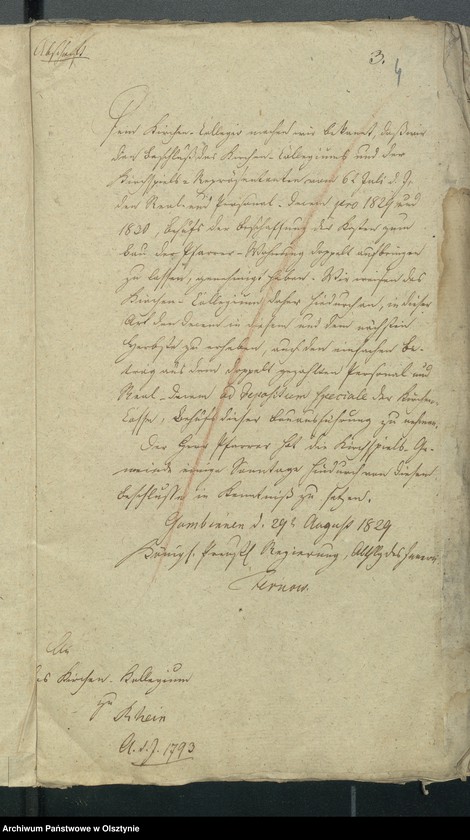 Abschrift
3.
4
Dem Kirchen-Collegio machen wir bekannt, daß wir
den Beschluß des Kirchen-Collegiums und der
Kirchspiels-Repräsentanten vom 6t Juli d. J.
den Real- und Personal-Decem pro 1829 und
1830, behufs der Beschaffung der Kosten zum
Bau der Pfarrer-Wohnung doppelt aufbringen
zu lassen, genehmigt haben. Wir weisen das
Kirchen-Collegium daher hiedurch an, in dieser
Art den Decem in diesem und dem nächsten
Herbste zu erheben, auch den einfachen Be-
trag aus dem doppelt gezahlten Personal und
Real-Decem ad depositum speciale der Kirchen-
Casse, behufs dieser Bauausführung zu nehmen.
Der Herr Pfarrer hat die Kirchspiels-Ge-
meinde einige Sonntage hindurch von diesem
Beschlusse in Kenntniß zu setzen.
Gumbinnen d. 29t August 1829
Königl. Preuß. Regierung, Abthlg des Innern
Fernow.
An
das Kirchen-Kollegium
zu
Rhein
A. d. J. 1793
Archiwum Państwowe w Olsztynie